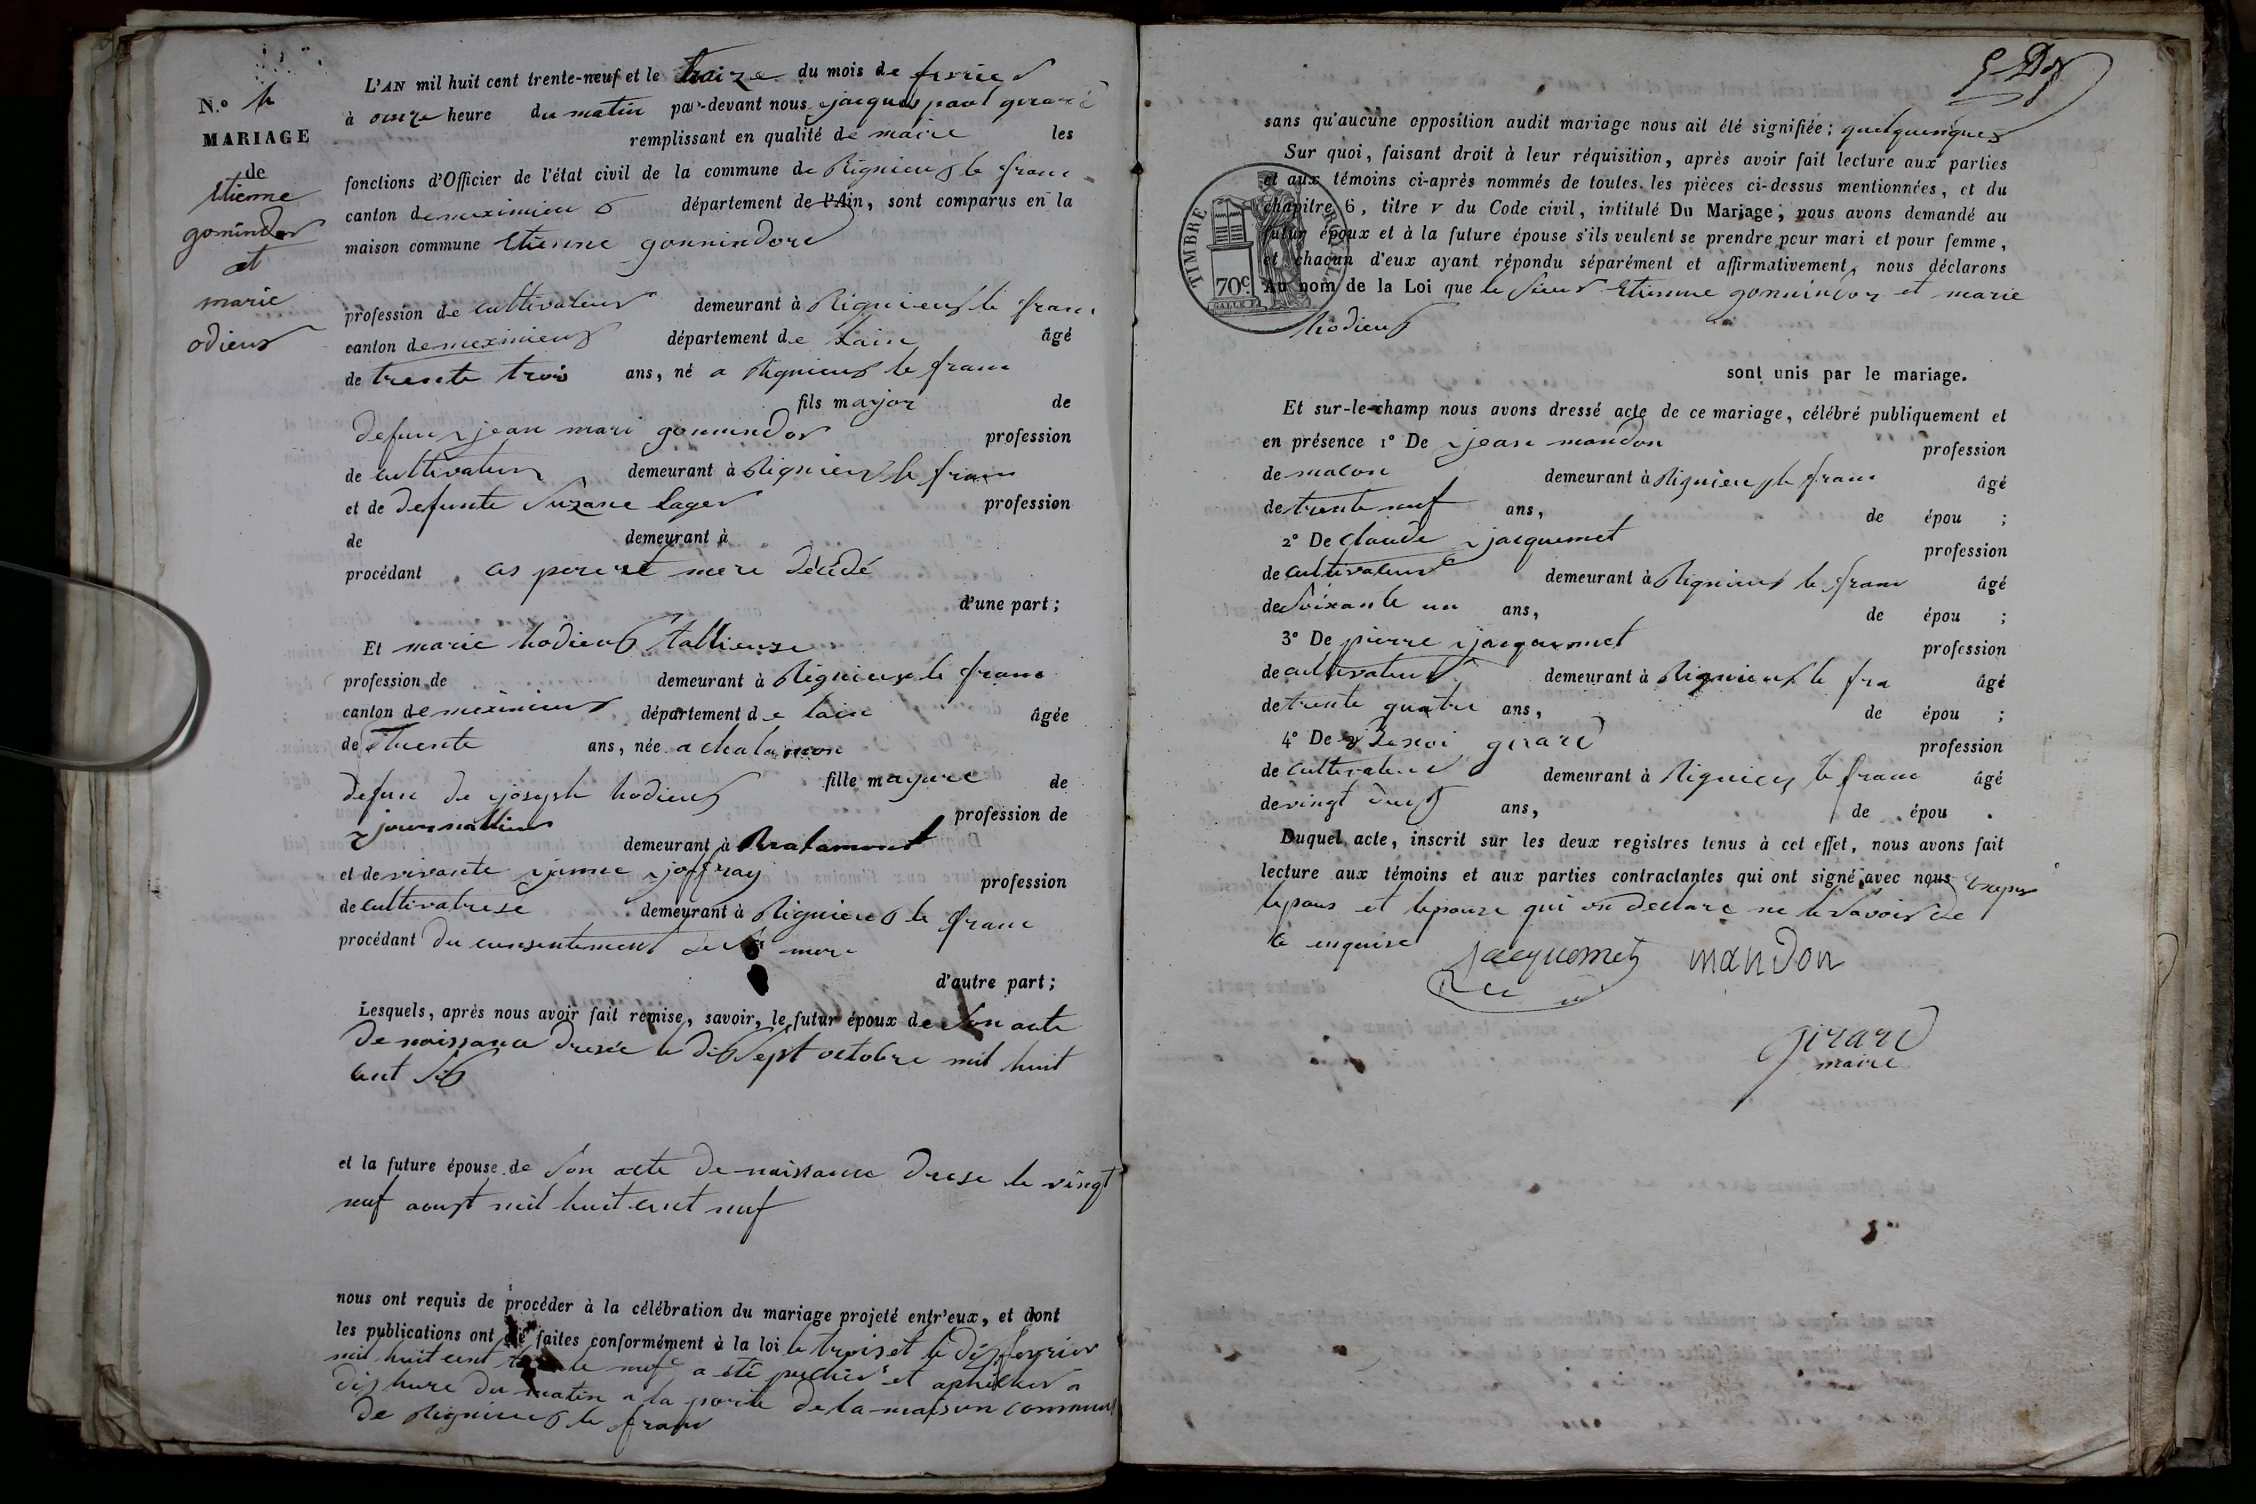 N.o 4
MARIAGE
de
Etienne
gonindor
et
marie
odieux
L'AN mil huit cent trente-neuf et le traize du mois de fevrier
à onze heure du matin par-devant nous jacques paul girard
remplissant en qualité de maire les
fonctions d'Officier de l'état civil de la commune de Rignieux le franc
canton de meximieux département de l'Ain, sont comparus en la
maison commune Etienne gonnindord
profession de cultivateur demeurant à Rignieux le franc
canton de meximieux département de lain âgé
de trente trois ans, né a Rignieux le franc
fils mayor de
defun jean mari gonnindor profession
de cultivateur demeurant à Rignieux le franc
et de defunte Suzane lager profession
de demeurant à
procédant as pere et mere décédé
d'une part;
Et marie hodieux
profession de demeurant à Rignieux le franc
canton de meximieux département de lain âgée
de trente ans, née a chalamon
fille mayure de
defun de joseph hodieux profession de
journallier demeurant à
et de vivante janne joffray profession
de cultivatrise demeurant à Rignieux le franc
procédant du consentement de sa mere
d'autre part;
Lesquels, après nous avoir fait remise, savoir, le futur époux de son acte
de naissance dresée le dix sept octobre mil huit
cent six
et la future épouse de son acte de naissance drese le vingt
neuf aoust mil huit cent neuf
nous ont requis de procéder à la célébration du mariage projeté entr'eux, et dont
les publications ont été faites conformément à la loi le trois et le dix fevrier
mil huit cent trente neuf a été et à
dix hure du matin a la porte de la maison commune
de Rignieux le franc
sans qu'aucune opposition audit mariage nous ait été signifiée; quelquenques
Sur quoi, faisant droit à leur réquisition, après avoir fait lecture aux parties
et aux témoins ci-après nommés de toutes les pièces ci-dessus mentionnées, et du
chapitre 6, titre V du Code civil, intitulé Du Mariage, nous avons demandé au
futur époux et à la future épouse s'ils veulent se prendre pour mari et pour femme,
et chacun d'eux ayant répondu séparément et affirmativement, nous déclarons
Au nom de la Loi que le sieur Etienne gonnindor et marie
hodieux
TIMBRE ROYAL
70c
sont unis par le mariage.
Et sur-le-champ nous avons dressé acte de ce mariage, célébré publiquement et
en présence 1° De jean mandon profession
de macon demeurant à Rignieux le franc âgé
de trente neuf ans, de épou ;
2° De claude jacquemet profession
de cultivateur demeurant à Rignieux le franc âgé
de soixante un ans, de épou ;
3° De pierre jacquemet profession
de cultivateur demeurant à Rignieux le fra âgé
de trente quatre ans, de épou ;
4° De Benoi girard profession
de cultivateur demeurant à Rignieux le franc âgé
de vingt ans, de épou .
Duquel acte, inscrit sur les deux registres tenus à cet effet, nous avons fait
lecture aux témoins et aux parties contractantes qui ont signé avec nous excepte
lepous et lepouse qui on declare ne le savoir de
ce enquise
Jacquemet mandon
girard
maire